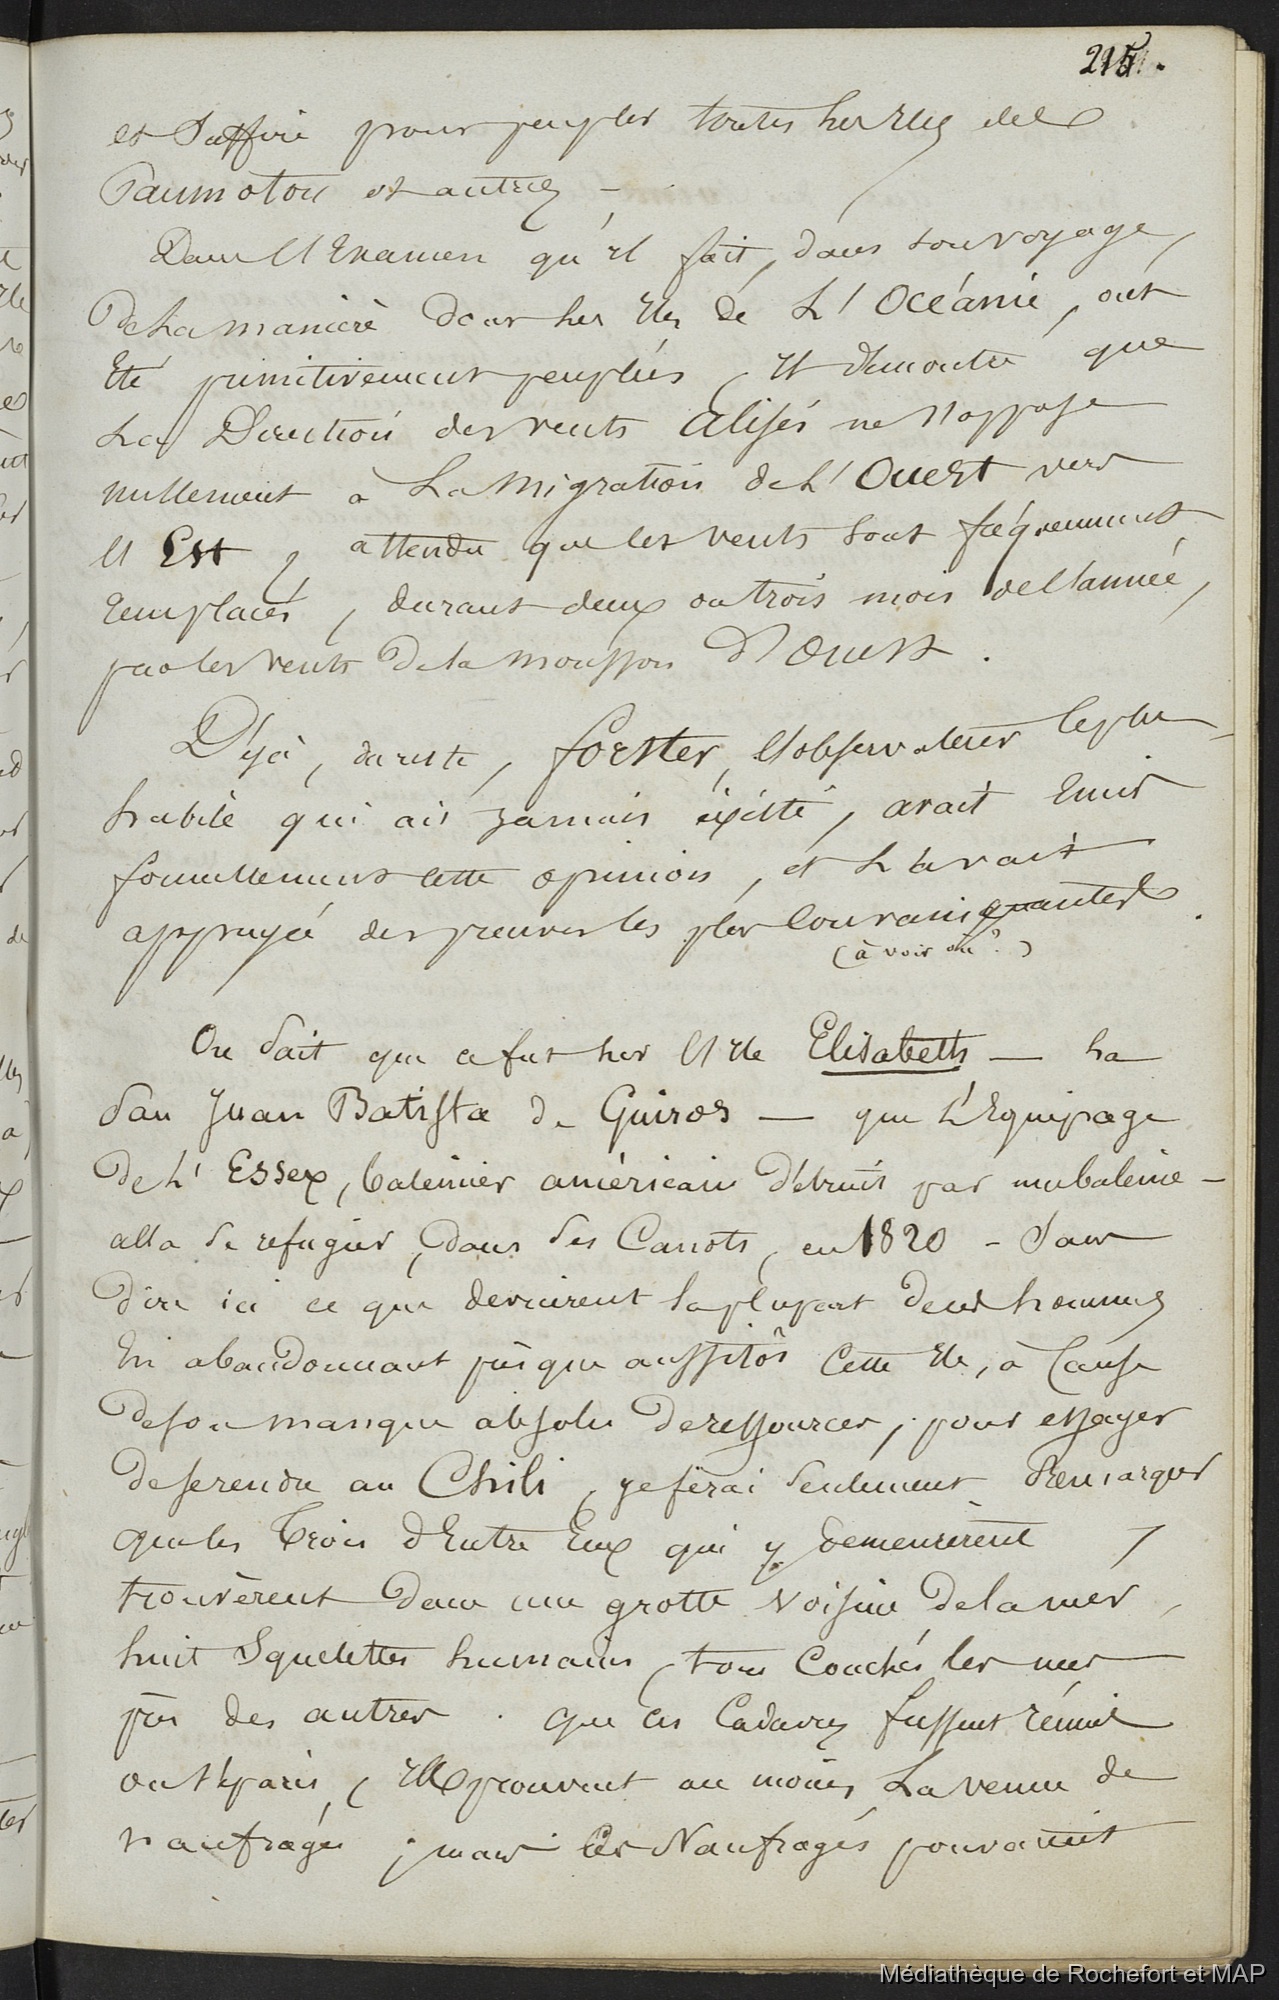 215.
et suffire pour peupler toutes les Iles des
Paumotou et autres —
Dans l'Examen qu'il fait, dans son voyage,
De la manière dont les Iles de L'Océanie, ont
Eté primitivement peuplées, Il démontre que
La Direction des vents alisés ne s'oppose
nullement à La Migration de L'Ouest vers
l'Est, attendu que les vents sont fréquemment
remplacés, durant deux ou trois mois de l'année,
par les vents De la mousson D'Ouest.
Déjà, du reste, forster, l'observateur le plus
habile qui ait jamais existé, avait Emis
formellement cette opinion, et L'avait
appuyée des preuves les plus
(à voir où ?)
On sait que ce fut sur l'Ile Elisabeth — La
San Juan Batista de Quiros — que L'Equipage
De L'Essex, baleinier américain Détruit par une baleine —
alla se refugier, dans ses Canots, en 1820 - Sans
Dire ici ce que devinrent la plupart de ces hommes
En abandonnant presque aussitôt Cette Ile, à Cause
De son manque absolu De ressources, pour essayer
De se rendre au Chili, je ferai seulement Remarquer
que les Trois d'Entre Eux qui y demeurèrent,
trouvèrent dans une grotte voisine De la mer,
huit Squelettes humains, tous Couchés les uns
près des autres. que ces Cadavres fussent réunis
ou séparés, Ils prouvent au moins La venue de
naufragés ; mais ces Naufragés pouvaient
Médiathèque de Rochefort et MAP